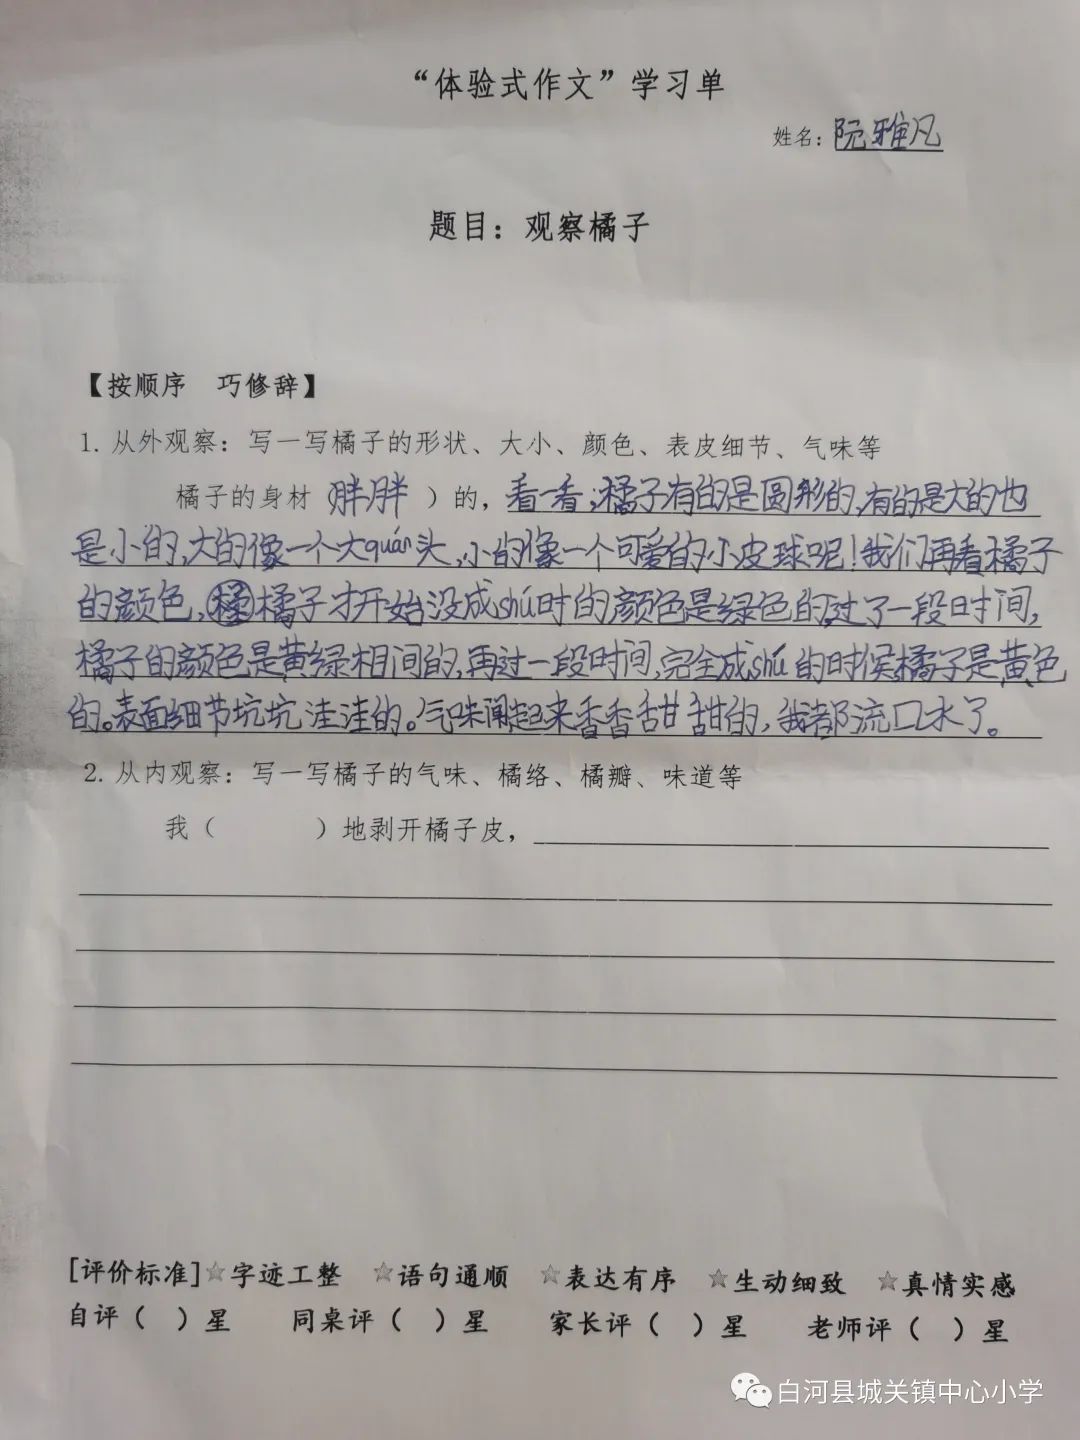 “体验式作文”学习单
姓名：阮雅凡
题目：观察橘子
【按顺序 巧修辞】
1. 从外观察：写一写橘子的形状、大小、颜色、表皮细节、气味等
橘子的身材（胖胖）的，看一看，橘子有的是圆形的，有的是大的也
是小的，大的像一个大quán头，小的像一个可爱的小皮球呢！我们再看橘子
的颜色，橘子才开始没成shú时的颜色是绿色的，过了一段时间，
橘子的颜色是黄绿相间的，再过一段时间，完全成shú的时候橘子是黄色
的。表面细节坑坑洼洼的。气味闻起来香香甜甜的，我都流口水了。
2. 从内观察：写一写橘子的气味、橘络、橘瓣、味道等
我（ ）地剥开橘子皮，
[评价标准]☆字迹工整 ☆语句通顺 ☆表达有序 ☆生动细致 ☆真情实感
自评（ ）星 同桌评（ ）星 家长评（ ）星 老师评（ ）星
白河县城关镇中心小学